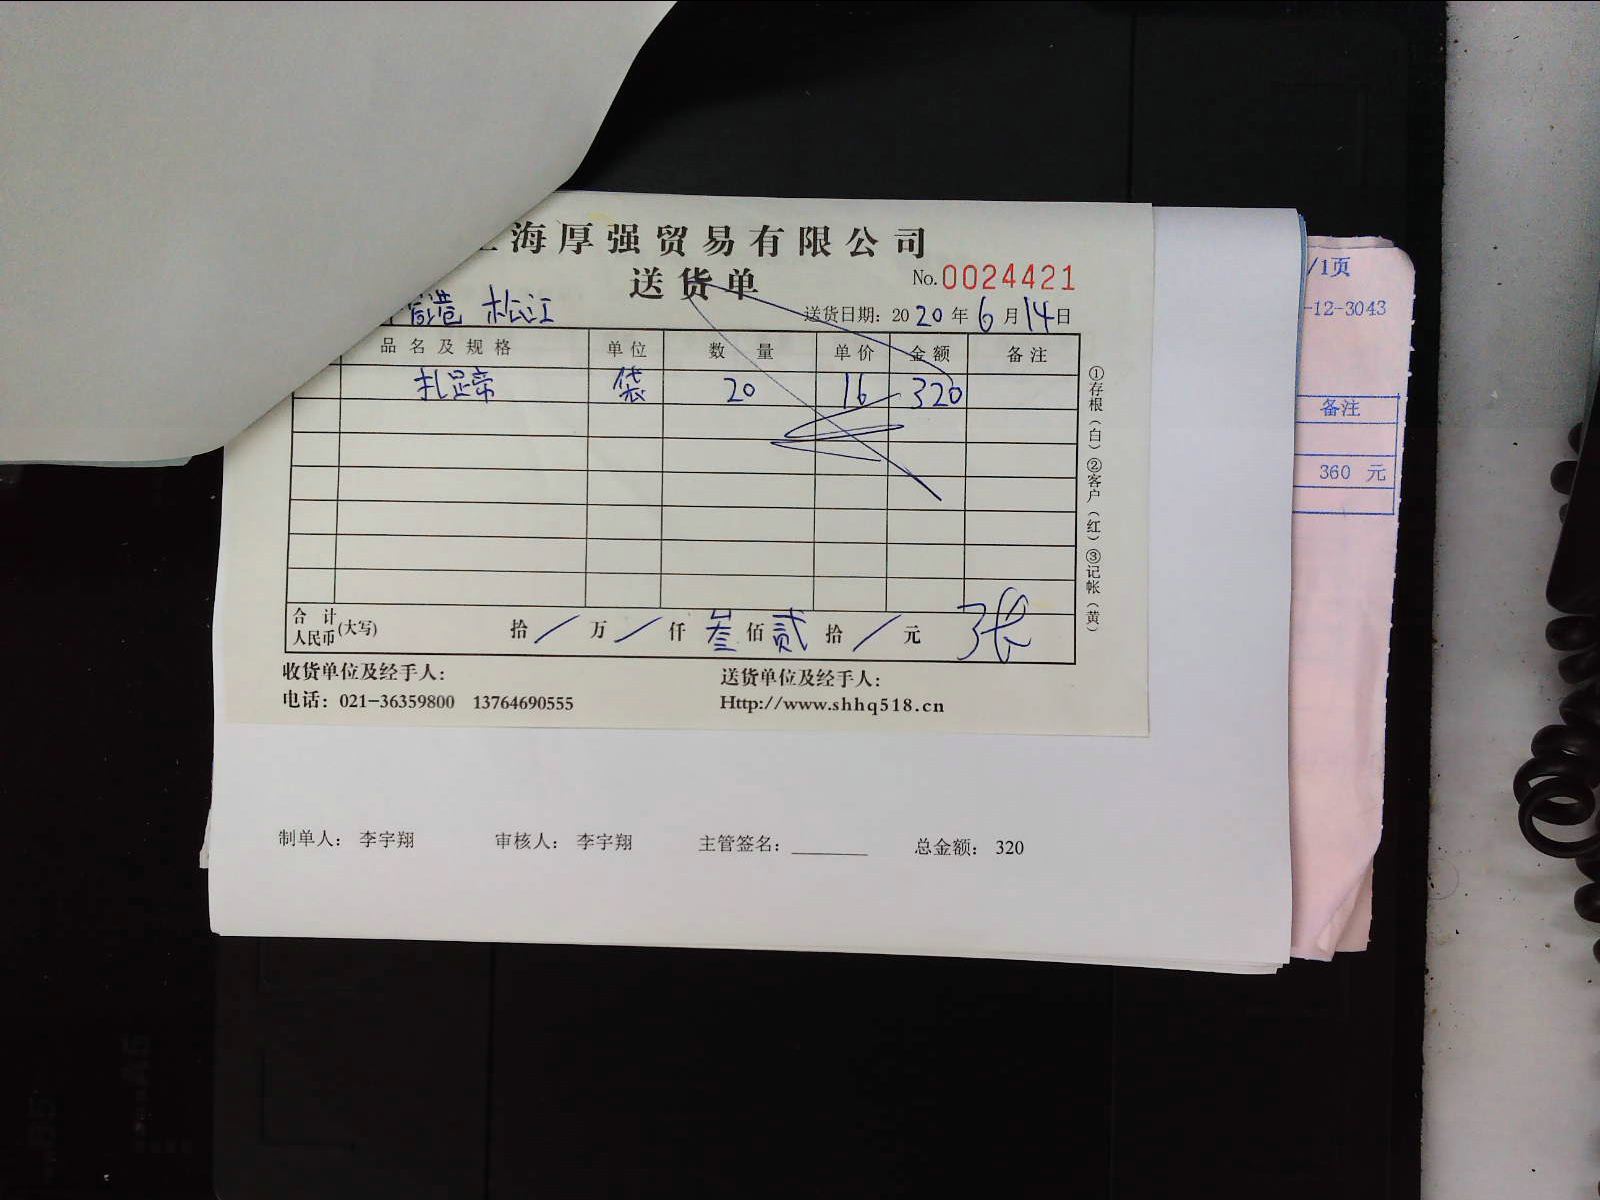 海厚强贸易有限公司
送货单
No.0024421
造 松江
送货日期: 2020年6月14日
品名及规格 单位 数量 单价 金额 备注
扎蹄 袋 20 16 320
合计人民币(大写) 拾/万/仟叁佰贰拾/元 张
收货单位及经手人:
送货单位及经手人:
电话: 021-36359800 13764690555
Http://www.shhq518.cn
①存根(白)②客户(红)③记帐(黄)
制单人: 李宇翔 审核人: 李宇翔 主管签名: 总金额: 320
/1页
-12-3043
备注
360 元